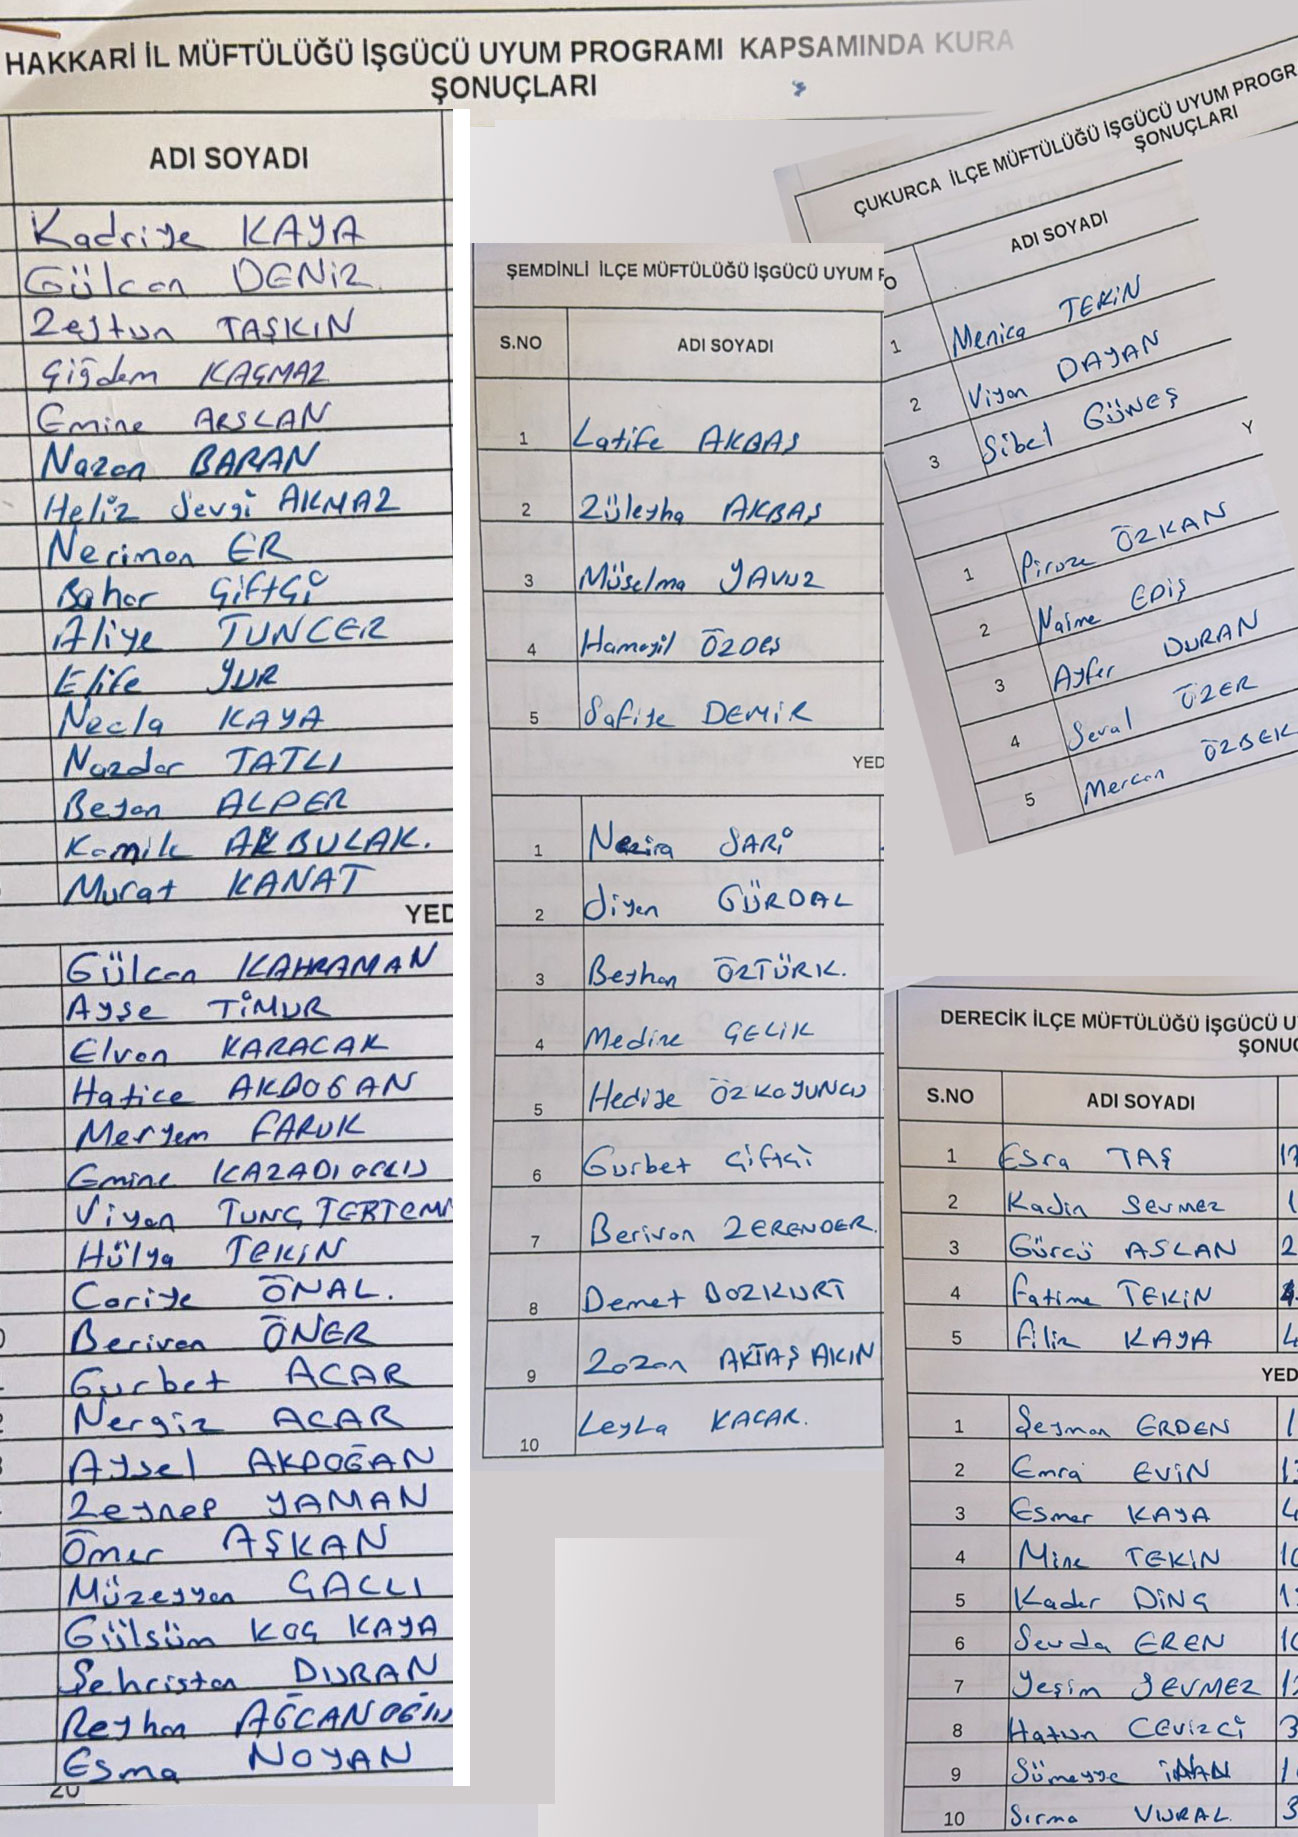 HAKKARİ İL MÜFTÜLÜĞÜ İŞGÜCÜ UYUM PROGRAMI KAPSAMINDA KURA
ŞONUÇLARI
ADI SOYADI
Kadriye KAYA
Gülcan DENİZ
Zeytun TAŞKIN
Çiğdem KAÇMAZ
Emine ARSLAN
Nazan BARAN
Heliz Sevgi AKMAZ
Neriman ER
Bahar ÇİFTÇİ
Aliye TUNCER
Elife YUR
Necla KAYA
Nazdar TATLI
Beyan ALPER
Kamile AKBULAK.
Murat KANAT
YED
Gülcan KAHRAMAN
Ayşe TİMUR
Elvan KARACAK
Hatice AKDOĞAN
Meryem FARUK
Emine
Viyan TUNÇ TERTEM
Hülya TEKİN
Cariye ÖNAL.
Berivan ÖNER
Gurbet ACAR
Nergiz ACAR
Aysel AKDOĞAN
Zeynep YAMAN
Ömer AŞKAN
Müzeyyen
Gülsüm KOÇ KAYA
Şehristan DURAN
Reyhan AĞCANOĞLU
Esma NOYAN
20
ŞEMDİNLİ İLÇE MÜFTÜLÜĞÜ İŞGÜCÜ UYUM P
S.NO ADI SOYADI
1 Latife AKBAŞ
2 Züleyha AKBAŞ
3 Müselma YAVUZ
4 Hamayil ÖZDEŞ
5 Safiye DEMİR
YED
1 Nezira SARİ
2 Diyan GÜRDAL
3 Beyhan ÖZTÜRK.
4 Medine ÇELİK
5 Hediye ÖZKOYUNCU
6 Gurbet Çiftçi
7 Berivan ZERENDER.
8 Demet BOZKURT
9 Zozan AKTAŞ AKIN
10 Leyla KACAR.
ÇUKURCA İLÇE MÜFTÜLÜĞÜ İŞGÜCÜ UYUM PROGR
ŞONUÇLARI
O ADI SOYADI
1 Menica TEKİN
2 Viyan DAYAN
3 Sibel GÜNEŞ
Y
1 Piruze ÖZKAN
2 Naime EDİŞ
3 Ayfer DURAN
4 Seval ÖZER
5 Mercan ÖZBEK
DERECİK İLÇE MÜFTÜLÜĞÜ İŞGÜCÜ U
ŞONUÇ
S.NO ADI SOYADI
1 Esra TAŞ
2 Kadin Sevmez
3 Gürcü ASLAN
4 Fatime TEKİN
5 Filiz KAYA
YED
1 Şeyman ERDEN
2 Emra EVİN
3 Esmer KAYA
4 Mine TEKİN
5 Kader DİNÇ
6 Sevda EREN
7 Yeşim SEVMEZ
8 Hatun CEVİZCİ
9 Sümeyye İNAN
10 Sırma VURAL